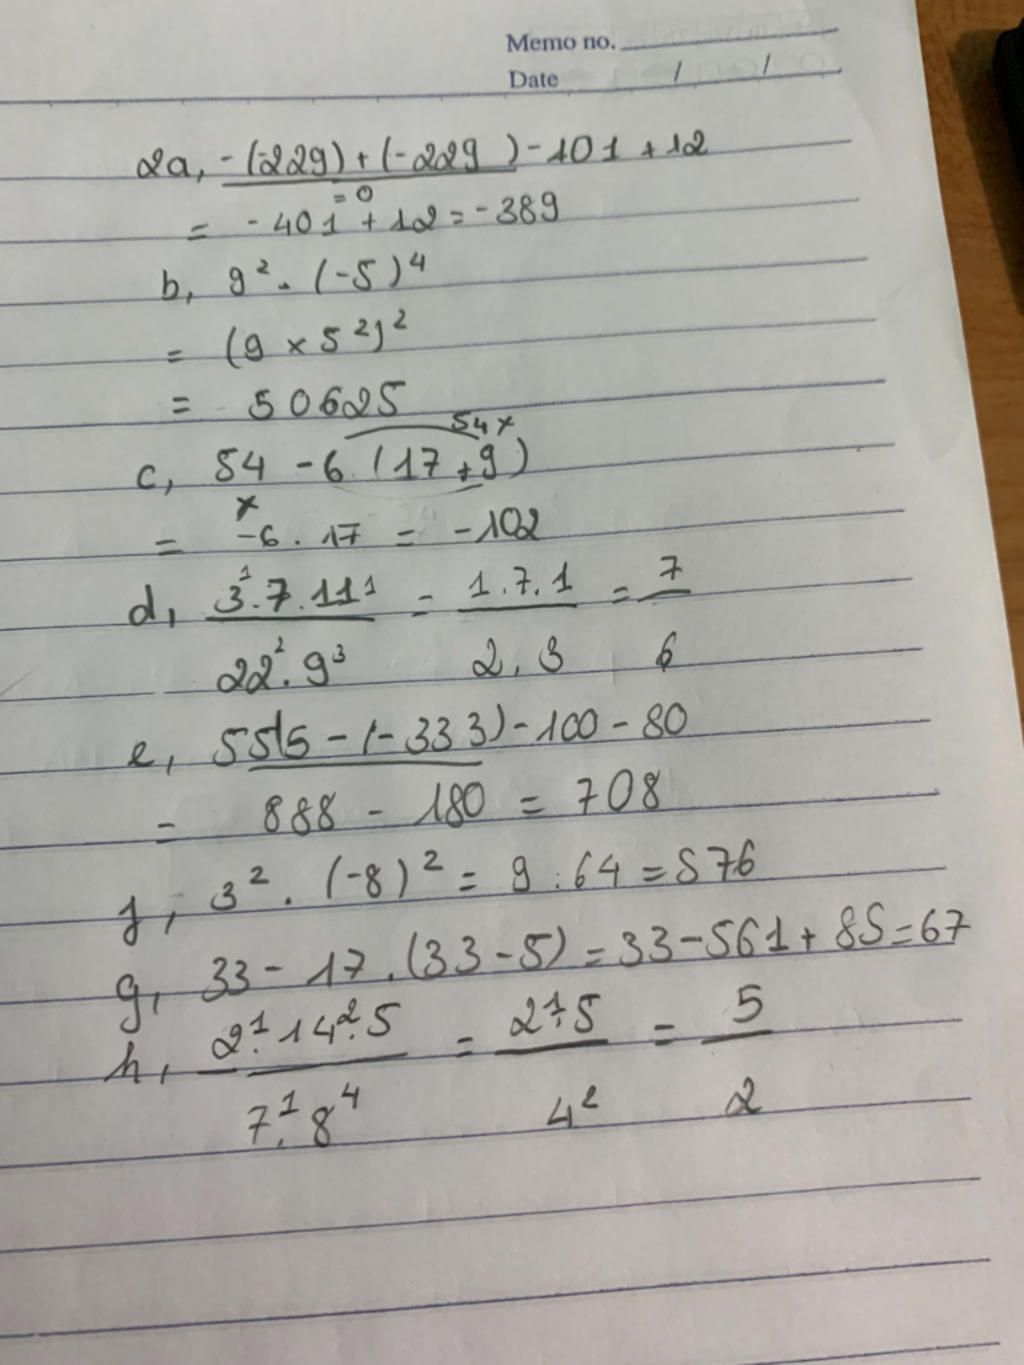 Memo no.
Date / /
2a, -(-229) + (-229) - 401 + 12
= 0
= -401 + 12 = -389
b, 9² . (-5)⁴
= (9 x 5²)²
= 50625
54 x
c, 54 - 6 . (17 + 9)
x
= -6 . 17 = -102
d, 3¹.7.11¹ = 1.7.1 = 7
22².9³ 2.3 6
e, 555 - (-333) - 100 - 80
= 888 - 180 = 708
f, 3² . (-8)² = 9 . 64 = 576
g, 33 - 17 . (33 - 5) = 33 - 561 + 85 = 67
h, 2¹.14².5 = 2¹.5 = 5
7¹.8⁴ 4² 2